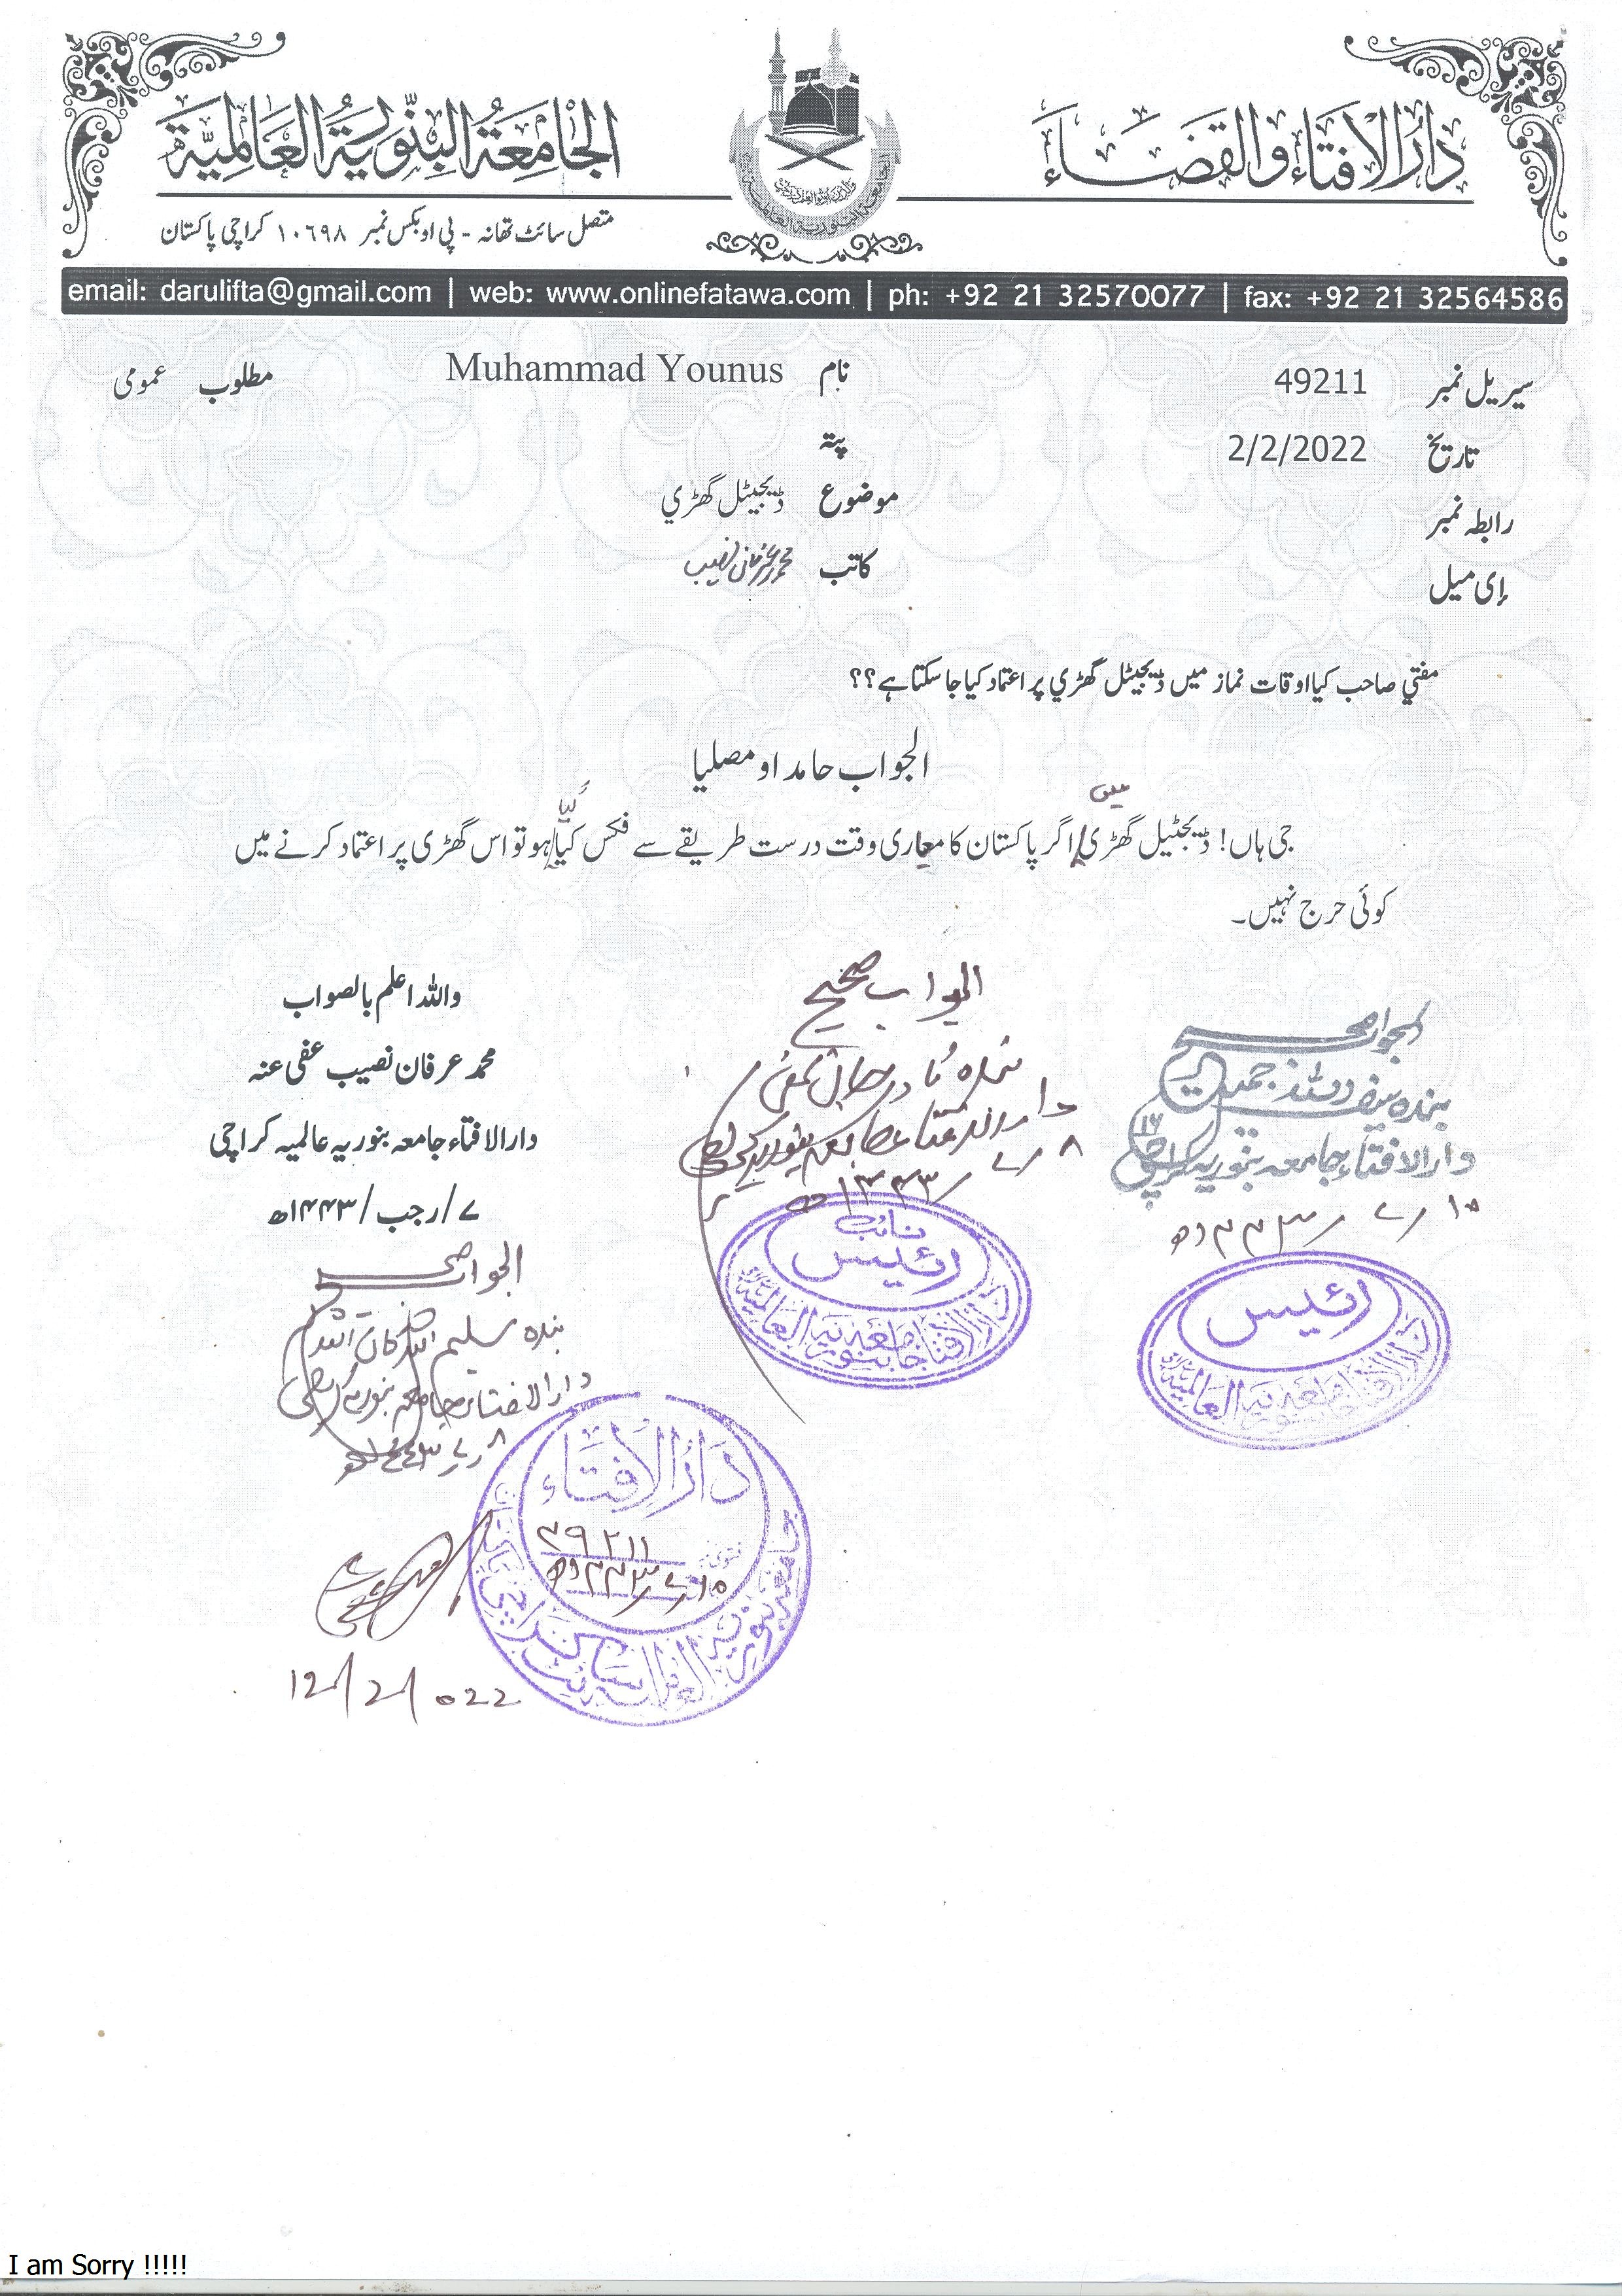 دارالافتاء والقضاء
الجامعة البنورية العالمية
متصل سائٹ تھانہ - پی او بکس نمبر ۱۰۶۹۸ کراچی پاکستان
email: darulifta@gmail.com | web: www.onlinefatawa.com | ph: +92 21 32570077 | fax: +92 21 32564586
سیریل نمبر 49211 نام Muhammad Younus مطلوب عمومی
تاریخ 2/2/2022 پتہ
رابطہ نمبر موضوع ڈیجیٹل گھڑي
إی میل کاتب محمد عرفان نصیب
مفتي صاحب کیا اوقات نماز میں ڈیجیٹل گھڑي پر اعتماد کیا جا سکتا ہے؟؟
الجواب حامدا و مصلیا
جی ہاں! ڈیجٹیل گھڑی میں اگر پاکستان کا معیاری وقت درست طریقے سے فکس کیا گیا ہو تو اس گھڑی پر اعتماد کرنے میں
کوئی حرج نہیں۔
واللہ اعلم بالصواب
محمد عرفان نصیب عفی عنہ
دارالافتاء جامعہ بنوریہ عالمیہ کراچی
۷/رجب/۱۴۴۳ھ
الجواب صحیح
بندہ نادر جان
دارالافتاء جامعہ بنوریہ کراچی
۸/۷/۱۴۴۳ھ
نائب
رئیس
دارالافتاء جامعہ بنوریہ العالمیہ
الجواب صحیح
بندہ سیف اللہ جمیل
دارالافتاء جامعہ بنوریہ کراچی
۱۰/۷/۱۴۴۳ھ
رئیس
دارالافتاء جامعہ بنوریہ العالمیہ
الجواب صحیح
بندہ سلیم اللہ
دارالافتاء جامعہ بنوریہ کراچی
۸/۷/۱۴۴۳ھ
دارالافتاء
۴۹۲۱۱
۱۰/۷/۱۴۴۳ھ
جامعہ بنوریہ العالمیہ سائٹ کراچی
12/2/022
I am Sorry !!!!!